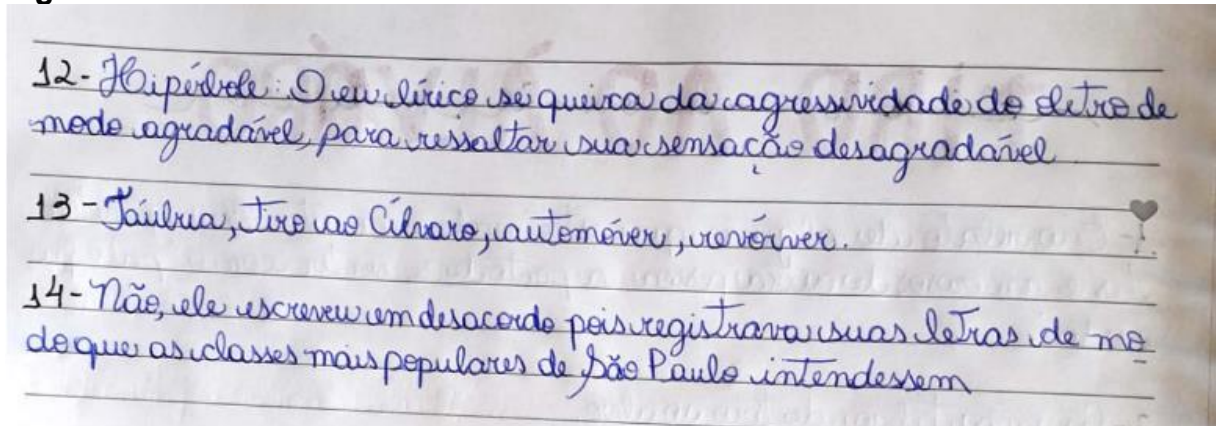 12- Hipérbole: O eu lírico se queixa da agressividade do outro de
modo agradável, para ressaltar sua sensação desagradável
13- Táubua, Tiro ao Álvaro, automóver, revórver.
14- Não, ele escreveu em desacordo pois registrava suas letras de mo
do que as classes mais populares de São Paulo intendessem